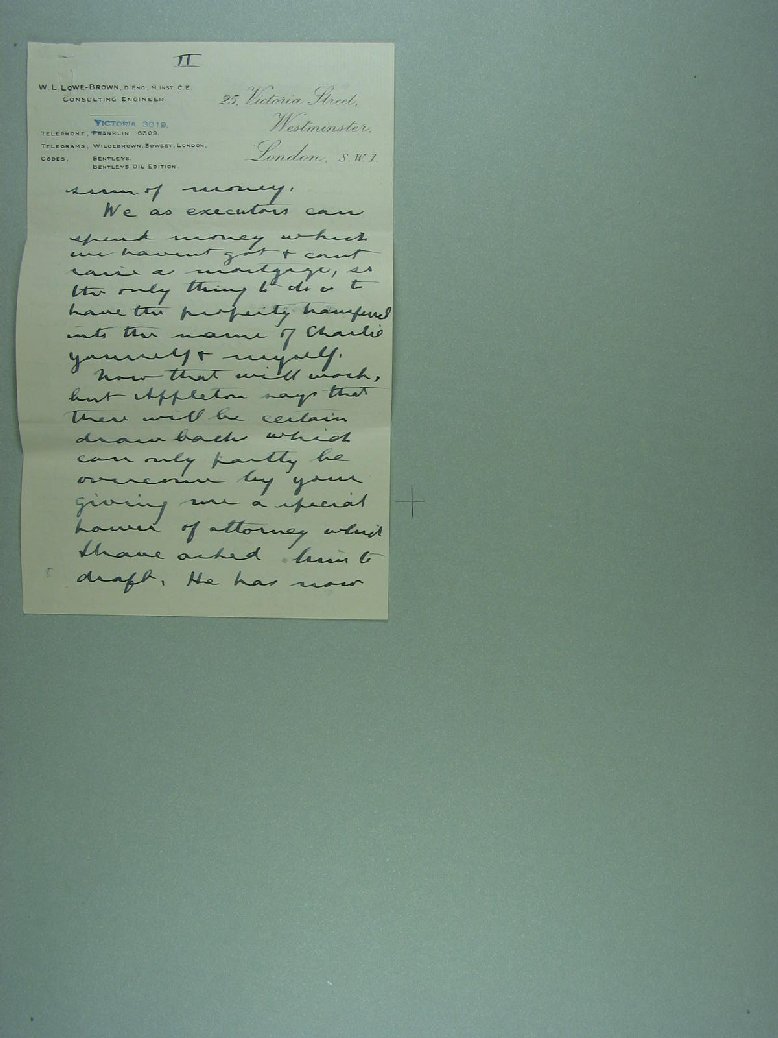 II
W. L. LOWE-BROWN, D.ENG., M.INST.C.E.
CONSULTING ENGINEER.
25, Victoria Street,
Westminster,
London, S.W.1.
VICTORIA 3019.
TELEPHONE, FRANKLIN 6503.
TELEGRAMS, WILOEBROWN, SOWEST, LONDON.
CODES. BENTLEYS.
BENTLEYS OIL EDITION.
sum of money.
We as executors can
spend money which
we havent got & cant
raise a mortgage, so
the only thing to do is to
have the property transferred
into the name of Charlie
yourself & myself.
Now that will work,
but Appleton says that
there will be certain
drawbacks which
can only partly be
overcome by your
giving me a special
power of attorney which
I have asked him to
draft. He has now